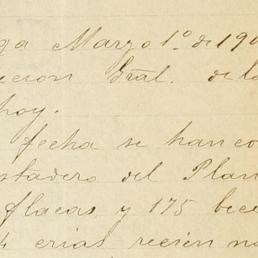 ga Marzo 1º de 19
cion Gral. de la
hoy.
fecha se han co
stadero del Plan
flacas y 175 bece
4 crias recien na